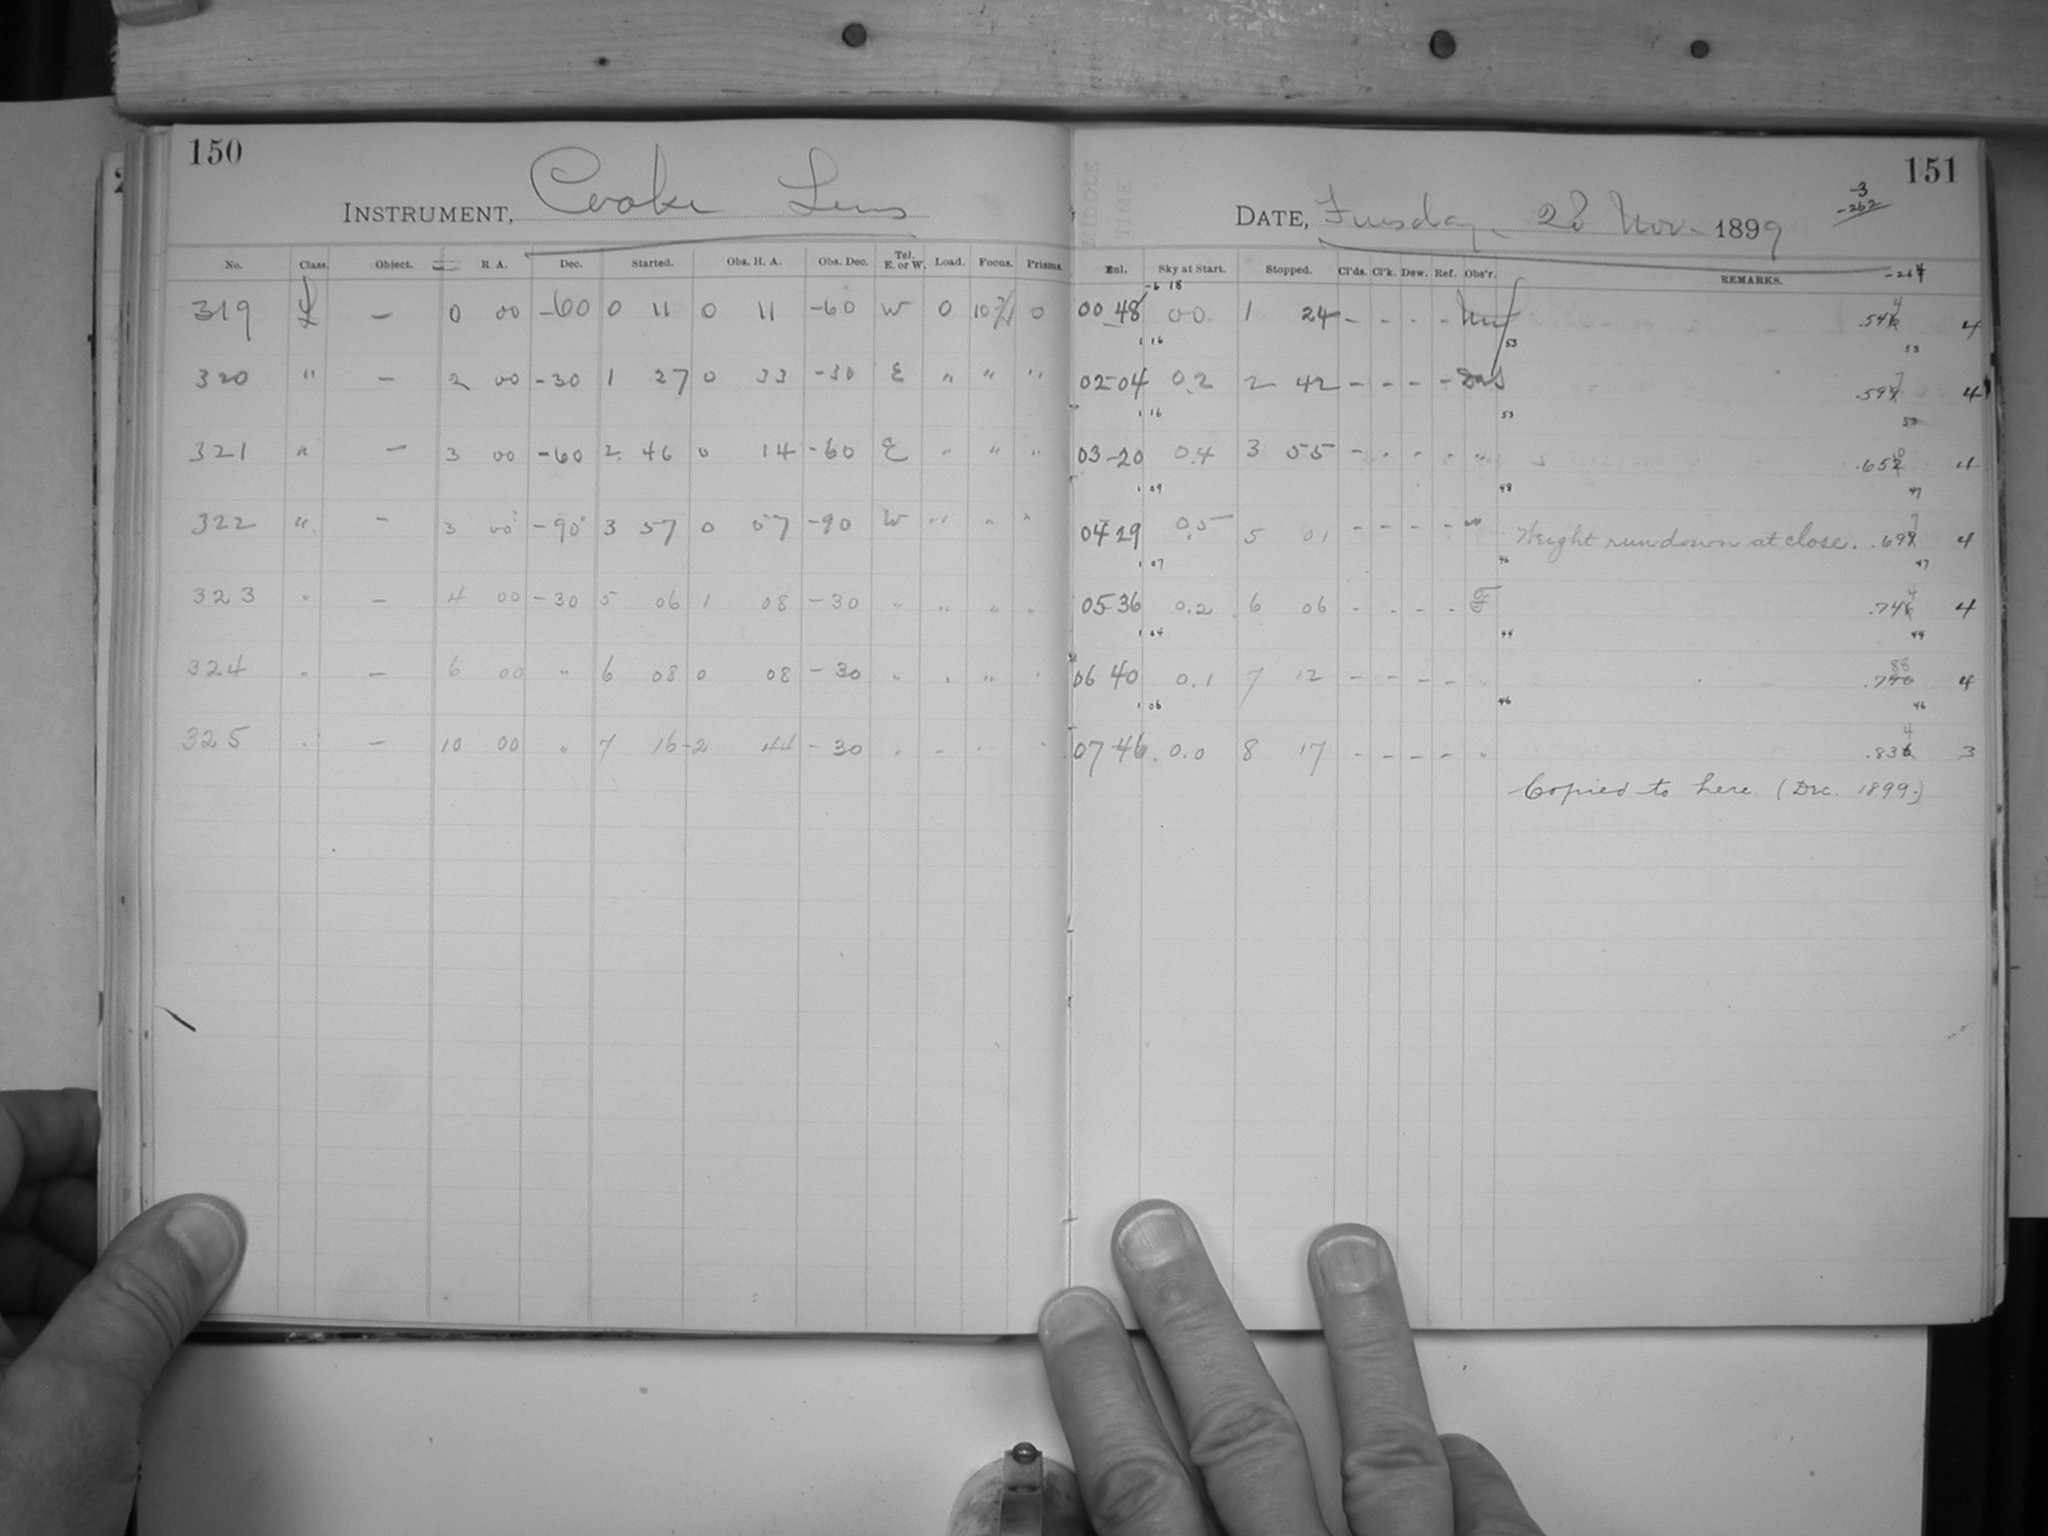 150
INSTRUMENT, Cooke Lens
No. Class. Object. R. A. Dec. Started. Obs. H. A. Obs. Dec. Tel. E. or W. Load. Focus. Prisms.
319 — 0 00 -60 0 11 0 11 -60 W 0 0
320 " — 2 00 -30 1 27 0 33 -30 E " " "
321 " — 3 00 -60 2 46 0 14 -60 E " " "
322 " — 3 00 -90 3 57 0 57 -90 W " " "
323 " — 4 00 -30 5 06 1 08 -30 " " " "
324 " — 6 00 " 6 08 0 08 -30 " " " "
325 " — 10 00 " 7 16 -2 44 -30 " " " "
151
MIDDLE TIME
DATE, Tuesday, 28 Nov. 1899
-3
-262
Enl. Sky at Start. Stopped. Cl'ds. Cl'k. Dew. Ref. Obs'r. REMARKS.
-6 18
00 48 00 1 24 - - - - 4
1 16 53 53
02 04 0.2 2 42 - - - - 4
1 16 53 53
03 20 0.4 3 55 - - - - " 4
1 09 48 47
04 29 0.5 5 01 - - - - " Weight run down at close. 4
1 07 46 47
05 36 0.2 6 06 - - - - 4
1 04 44 44
06 40 0.1 7 12 - - - - " 4
1 06 46 46
07 46 0.0 8 17 - - - - " 3
Copied to here (Dec. 1899.)